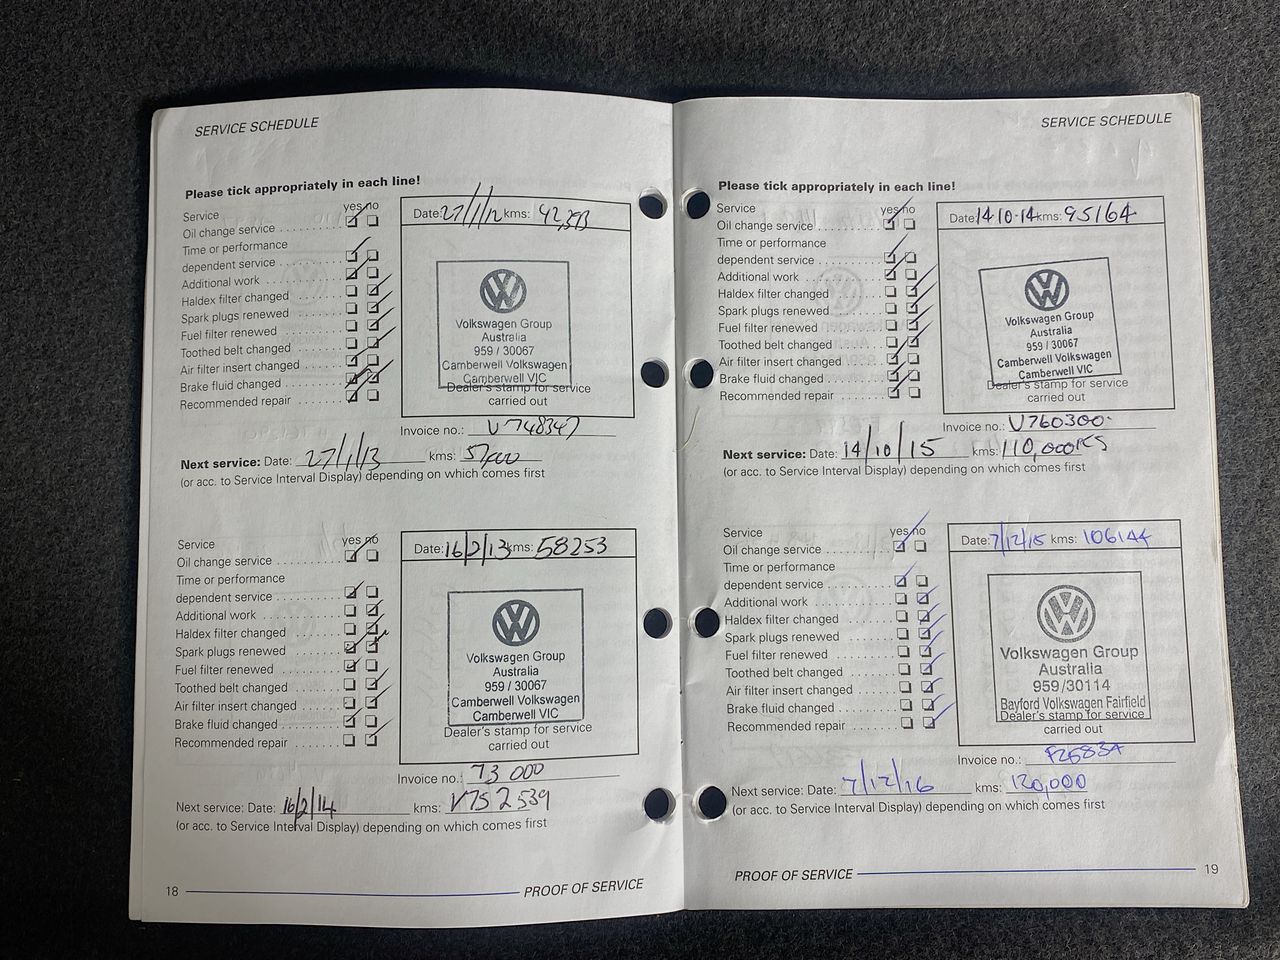 SERVICE SCHEDULE
Please tick appropriately in each line!
yes no
Service
Oil change service
Time or performance
dependent service
Additional work
Haldex filter changed
Spark plugs renewed
Fuel filter renewed
Toothed belt changed
Air filter insert changed
Brake fluid changed
Recommended repair
Date: 27/1/12 kms:
Volkswagen Group
Australia
959 / 30067
Camberwell Volkswagen
Camberwell VIC
Dealer's stamp for service
carried out
Invoice no.: V748347
Next service: Date: 27/1/13 kms: 57,000
(or acc. to Service Interval Display) depending on which comes first
yes no
Service
Oil change service
Time or performance
dependent service
Additional work
Haldex filter changed
Spark plugs renewed
Fuel filter renewed
Toothed belt changed
Air filter insert changed
Brake fluid changed
Recommended repair
Date: 16/2/13 kms: 58253
Volkswagen Group
Australia
959 / 30067
Camberwell Volkswagen
Camberwell VIC
Dealer's stamp for service
carried out
Invoice no.: 73 000
Next service: Date: 16/2/14 kms: V752539
(or acc. to Service Interval Display) depending on which comes first
18 PROOF OF SERVICE
SERVICE SCHEDULE
Please tick appropriately in each line!
yes no
Service
Oil change service
Time or performance
dependent service
Additional work
Haldex filter changed
Spark plugs renewed
Fuel filter renewed
Toothed belt changed
Air filter insert changed
Brake fluid changed
Recommended repair
Date: 14·10·14 kms: 95164
Volkswagen Group
Australia
959 / 30067
Camberwell Volkswagen
Camberwell VIC
Dealer's stamp for service
carried out
Invoice no.: V760300
Next service: Date: 14/10/15 kms: 110,000
(or acc. to Service Interval Display) depending on which comes first
yes no
Service
Oil change service
Time or performance
dependent service
Additional work
Haldex filter changed
Spark plugs renewed
Fuel filter renewed
Toothed belt changed
Air filter insert changed
Brake fluid changed
Recommended repair
Date: 7/12/15 kms: 106144
Volkswagen Group
Australia
959/30114
Bayford Volkswagen Fairfield
Dealer's stamp for service
carried out
Invoice no.:
Next service: Date: 7/12/16 kms: 120,000
(or acc. to Service Interval Display) depending on which comes first
PROOF OF SERVICE 19